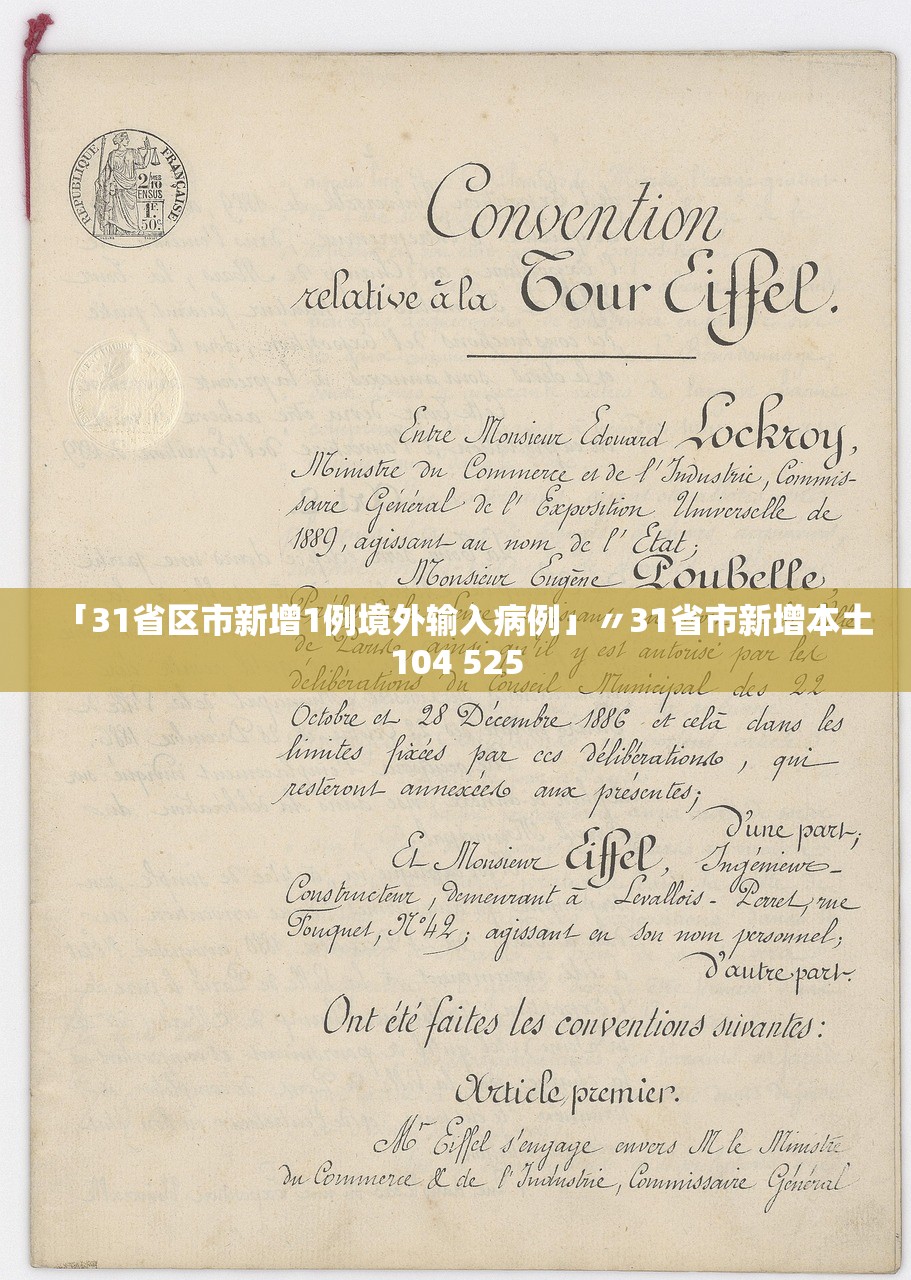 RÉPUBLIQUE FRANÇAISE
2/10
EN SUS
1F.
50c
Convention
relative à la Tour Eiffel.
Entre Monsieur Edouard Lockroy,
Ministre du Commerce et de l'Industrie, Commis-
saire Général de l'Exposition Universelle de
1889, agissant au nom de l'Etat;
Monsieur Eugène Poubelle
「31省区市新增1例境外输入病例」〃31省市新增本土
104 525
de Paris, ainsi qu'il y est autorisé par les
délibérations du Conseil Municipal des 22
Octobre et 28 Décembre 1886 et celà dans les
limites fixées par ces délibérations, qui
resteront annexées aux présentes;
d'une part;
Et Monsieur Eiffel, Ingénieur-
Constructeur, demeurant à Levallois-Perret, rue
Fouquet, N°42; agissant en son nom personnel;
d'autre part.
Ont été faites les conventions suivantes:
Article premier.
Mr Eiffel s'engage envers M le Ministre
du Commerce & de l'Industrie, Commissaire Général